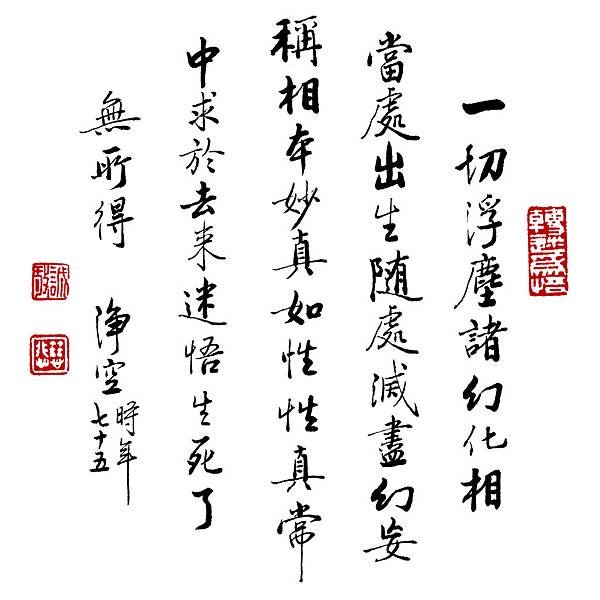 轉迷為悟
一切浮塵諸幻化相
當處出生随處滅盡幻妄
稱相本妙真如性性真常
中求於去来迷悟生死了
無所得
淨空
時年
七十五